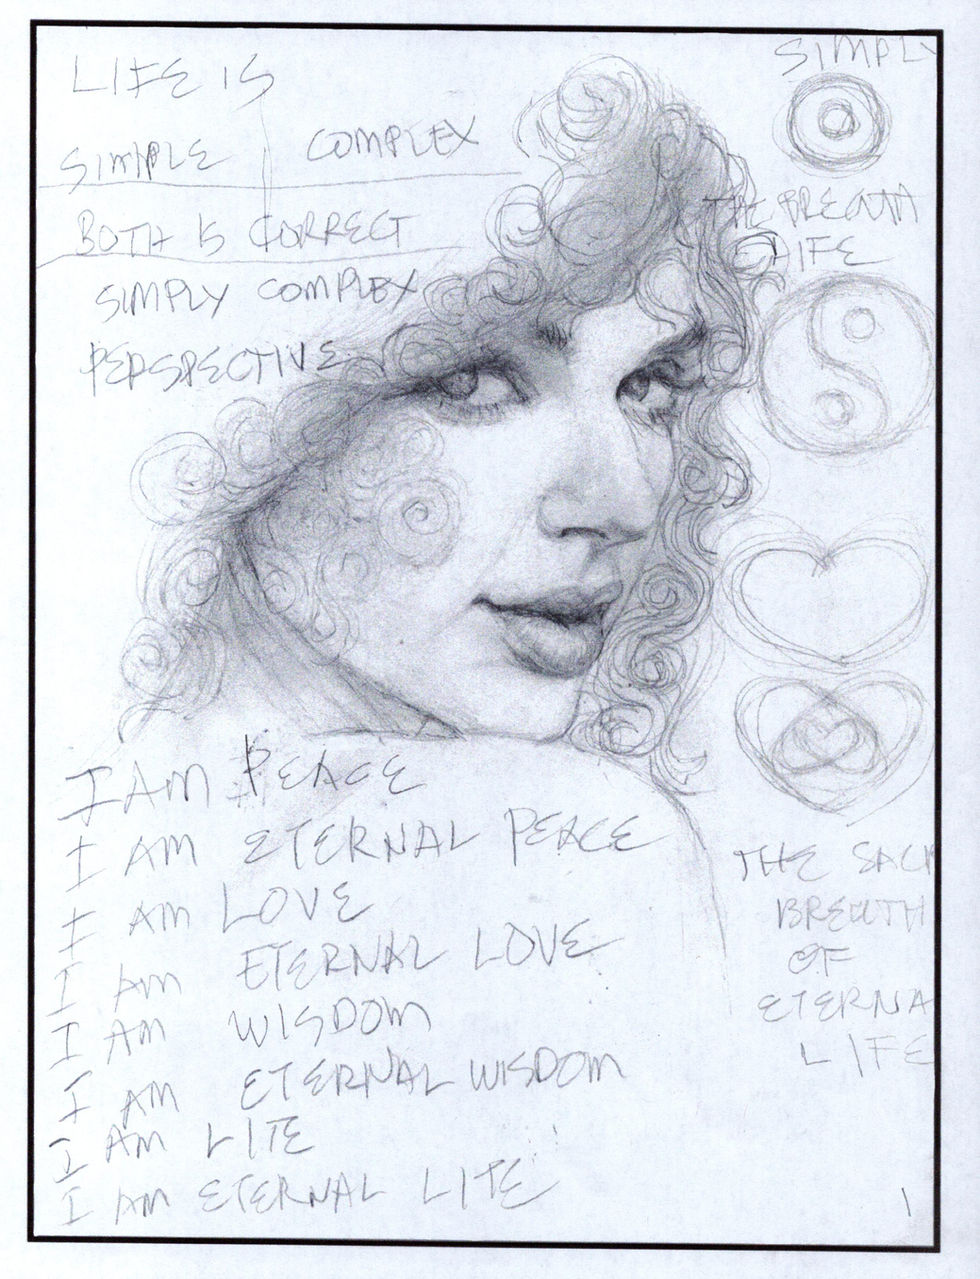 LIFE IS
SIMPLE COMPLEX
BOTH IS CORRECT
SIMPLY COMPLEX
PERSPECTIVE
I AM PEACE
I AM ETERNAL PEACE
I AM LOVE
I AM ETERNAL LOVE
I AM WISDOM
I AM ETERNAL WISDOM
I AM LITE
I AM ETERNAL LITE
SIMPLY
THE BREATH
LIFE
THE SACR
BREATH
OF
ETERNA
LIFE